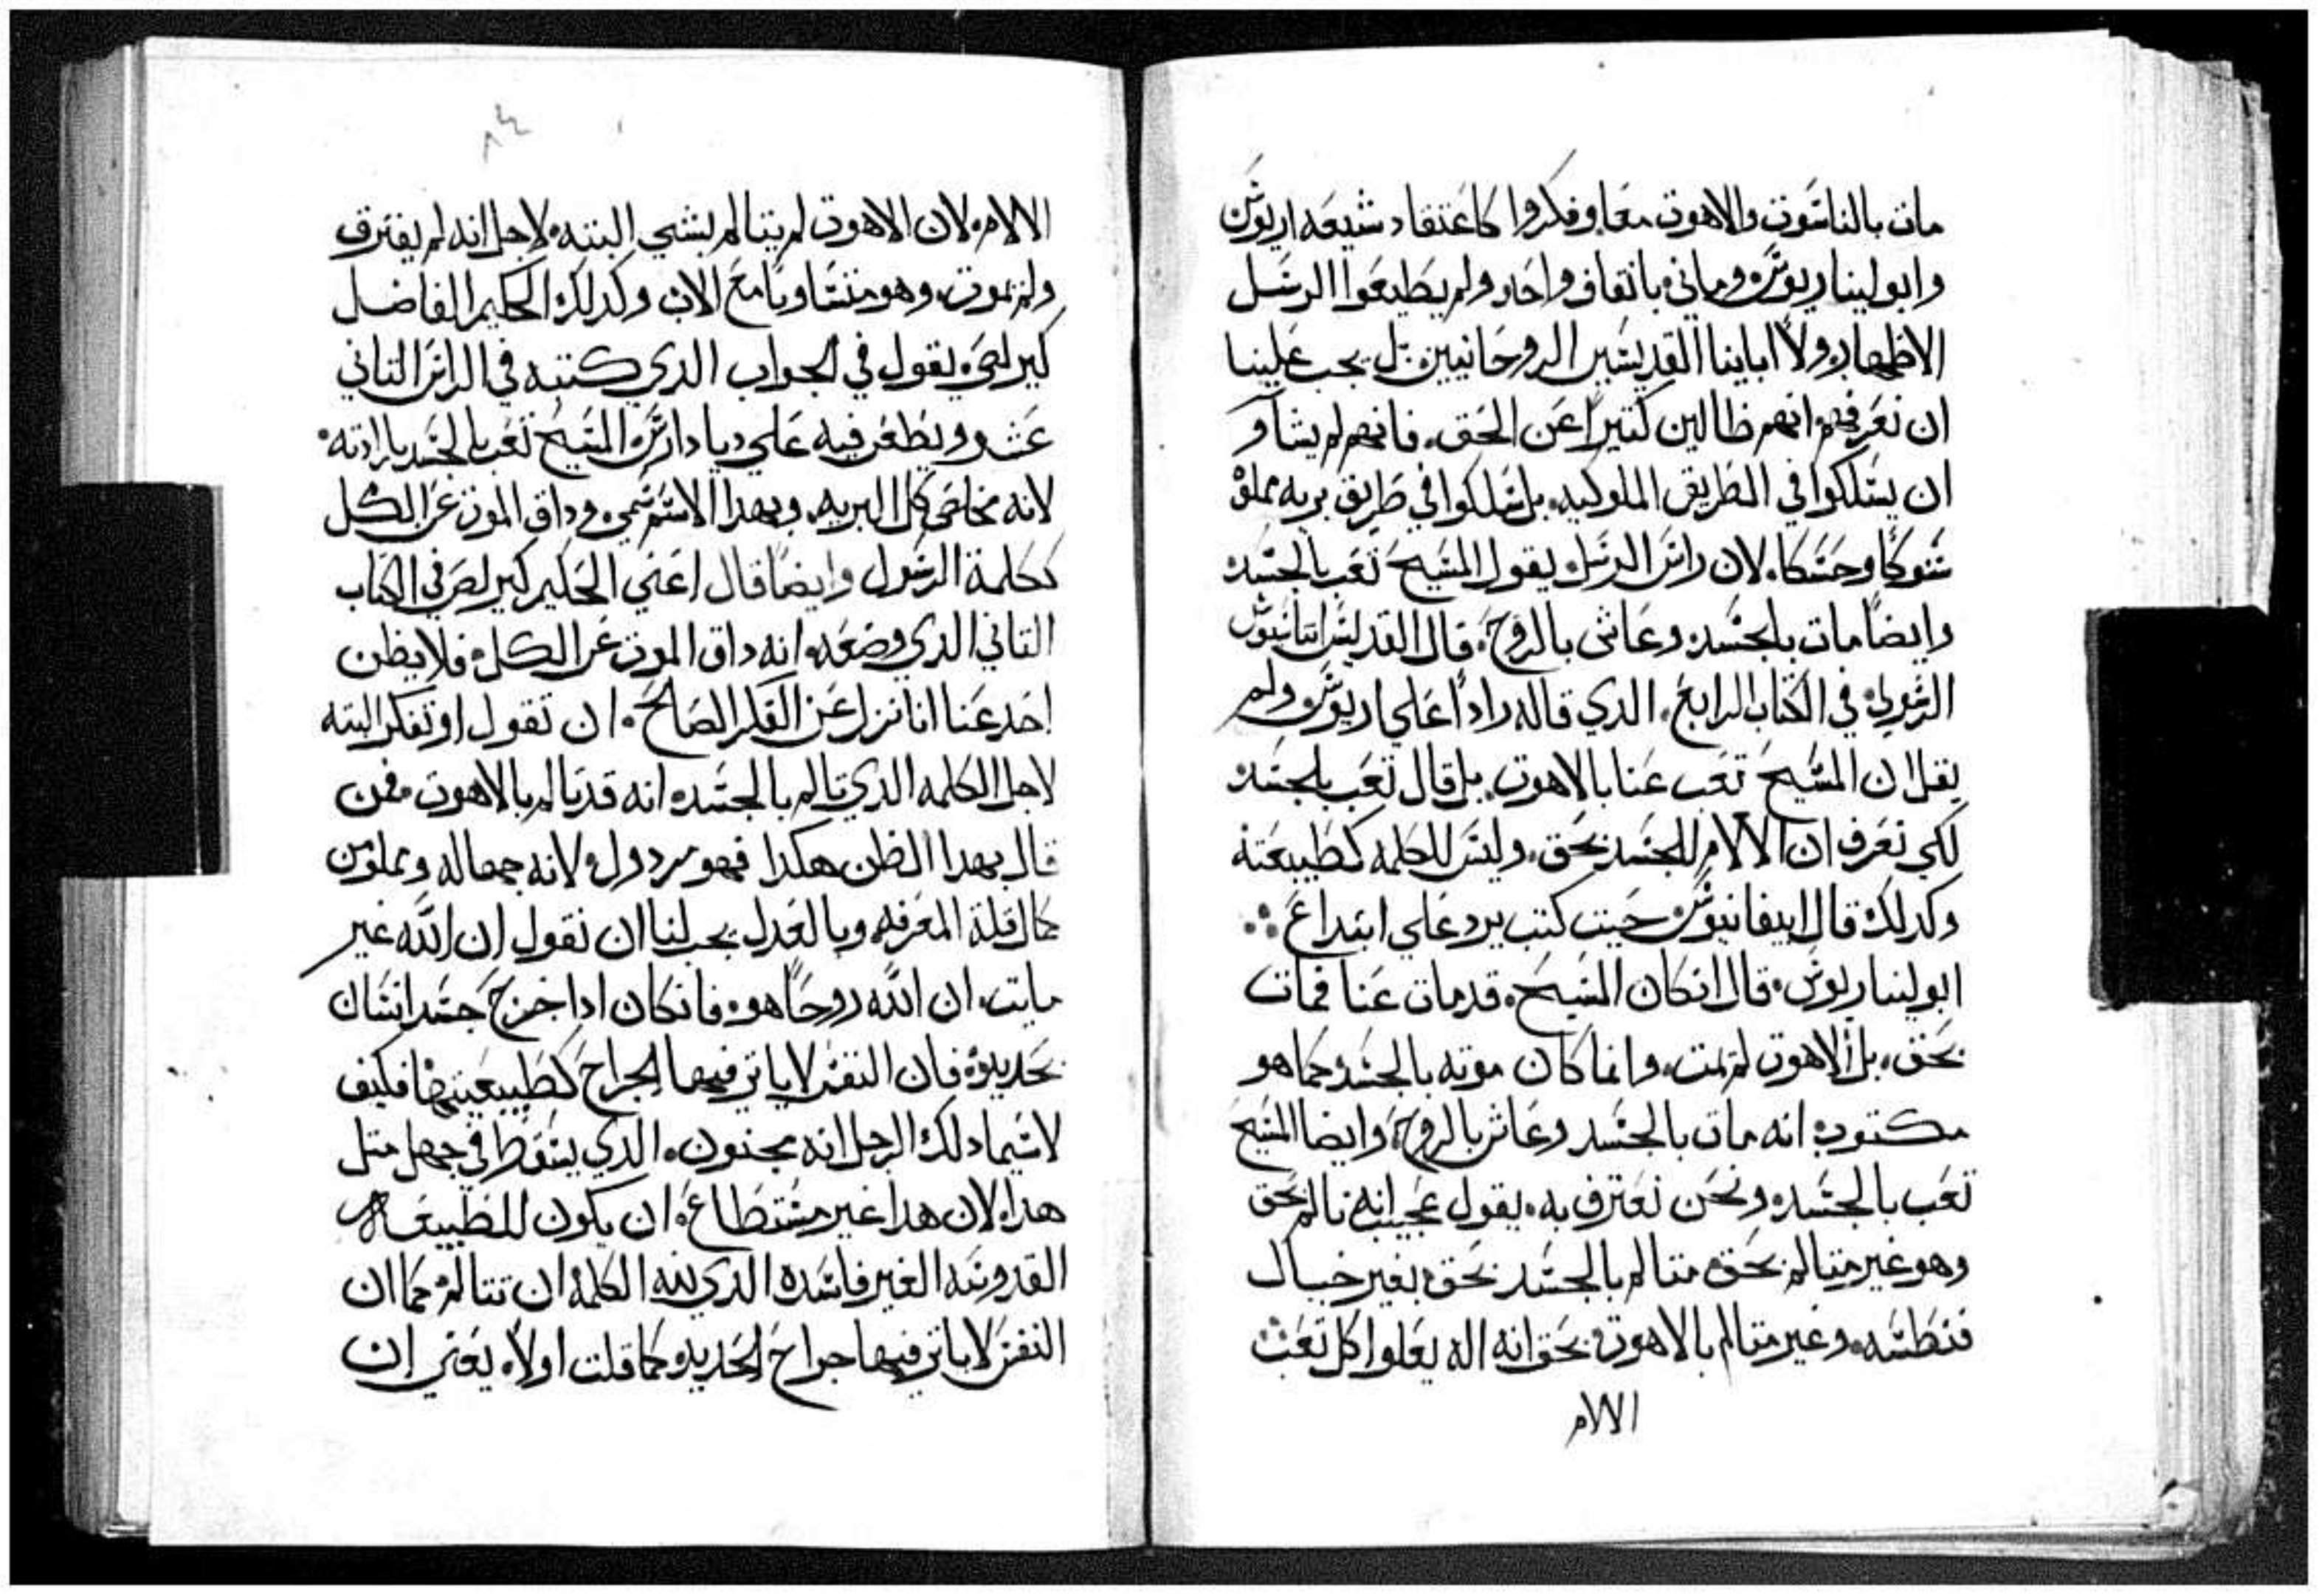 مات بالناسوت والاهوت معا وفكروا كاعتقاد شيعه اريوس
وابوليناريوس وماني باتفاق واحد ولم يطيعوا الرسل
الاطهار ولا اباينا القديسين الروحانيين بل يجب علينا
ان نعرفهم انهم ظالين كتيرا عن الحق فانهم لم يشاو
ان يسلكوا في الطريق الملوكيه بل سلكوا في طريق بريه مملوه
شوكا وحسكا لان راس الرسل يقول المسيح تعب بالجسد
وايضا مات بالجسد وعاش بالروح قال القديس اتناسيوس
الرسولي في الكتاب الرابع الذي قاله رادا علي اريوس ولم
يقل ان المسيح تعب عنا بالاهوت بل قال تعب بالجسد
لكي نعرف ان الالام للجسد بحق وليس للكلمه كطبيعته
وكدلك قال ابيفانيوس حيت كتب يرد علي ابتداع
ابوليناريوس قال انكان المسيح قد مات عنا فمات
بحق بل الاهوت لم تمت وانما كان موته بالجسد كما هو
مكتوب انه مات بالجسد وعاش بالروح وايضا المسيح
تعب بالجسد ونحن نعترف به يقول عجيب انه تالم بحق
وهو غير متالم بحق متالم بالجسد بحق بغير خيال
فنطسه وغير متالم بالاهوت بحق انه اله يعلوا كل تعب
الالام
٨٤
الالام لان الاهوت لم يتالم بشي البته لاجل انه لم يفترق
ولم يموت وهو متساويا مع الاب وكدلك الحكيم الفاضل
كيرلص يقول في الجواب الدي كتبه في الراس التاني
عشر ويطعن فيه علي ديادارس المسيح تعب بالجسد بارادته
لانه مخلص كل البريه وبهدا الاسم سمي وداق الموت عن الكل
ككلمة الرسول وايضا قال اعني الحكيم كيرلص في الكتاب
التاني الدي وضعه انه داق الموت عن الكل فلا يظن
احد عنا انا نزل عن الفكر الصالح ان نقول او نفكر البته
لاجل الكلمه الدي تالم بالجسد انه قد تالم بالاهوت فمن
قال بهدا الظن هكدا فهو مردول لانه جهاله ومملو من
كال قلة المعرفه وبالعدل يجب لنا ان نقول ان الله غير
مايت ان الله روحا هو فانكان ادا خرج جسد انسان
بحديده فان النفس لا ياتر فيها الجراح كطبيعيتها فكيف
لاسيما دلك الرجل انه مجنون الدي يسقط في جهل متل
هدا لان هدا غير مستطاع ان يكون للطبيعه
القدوسه الغير فاسده الدي لله الكلمه ان تتالم كما ان
النفس لا ياتر فيها جراح الحديد كما قلت اولا يعني ان